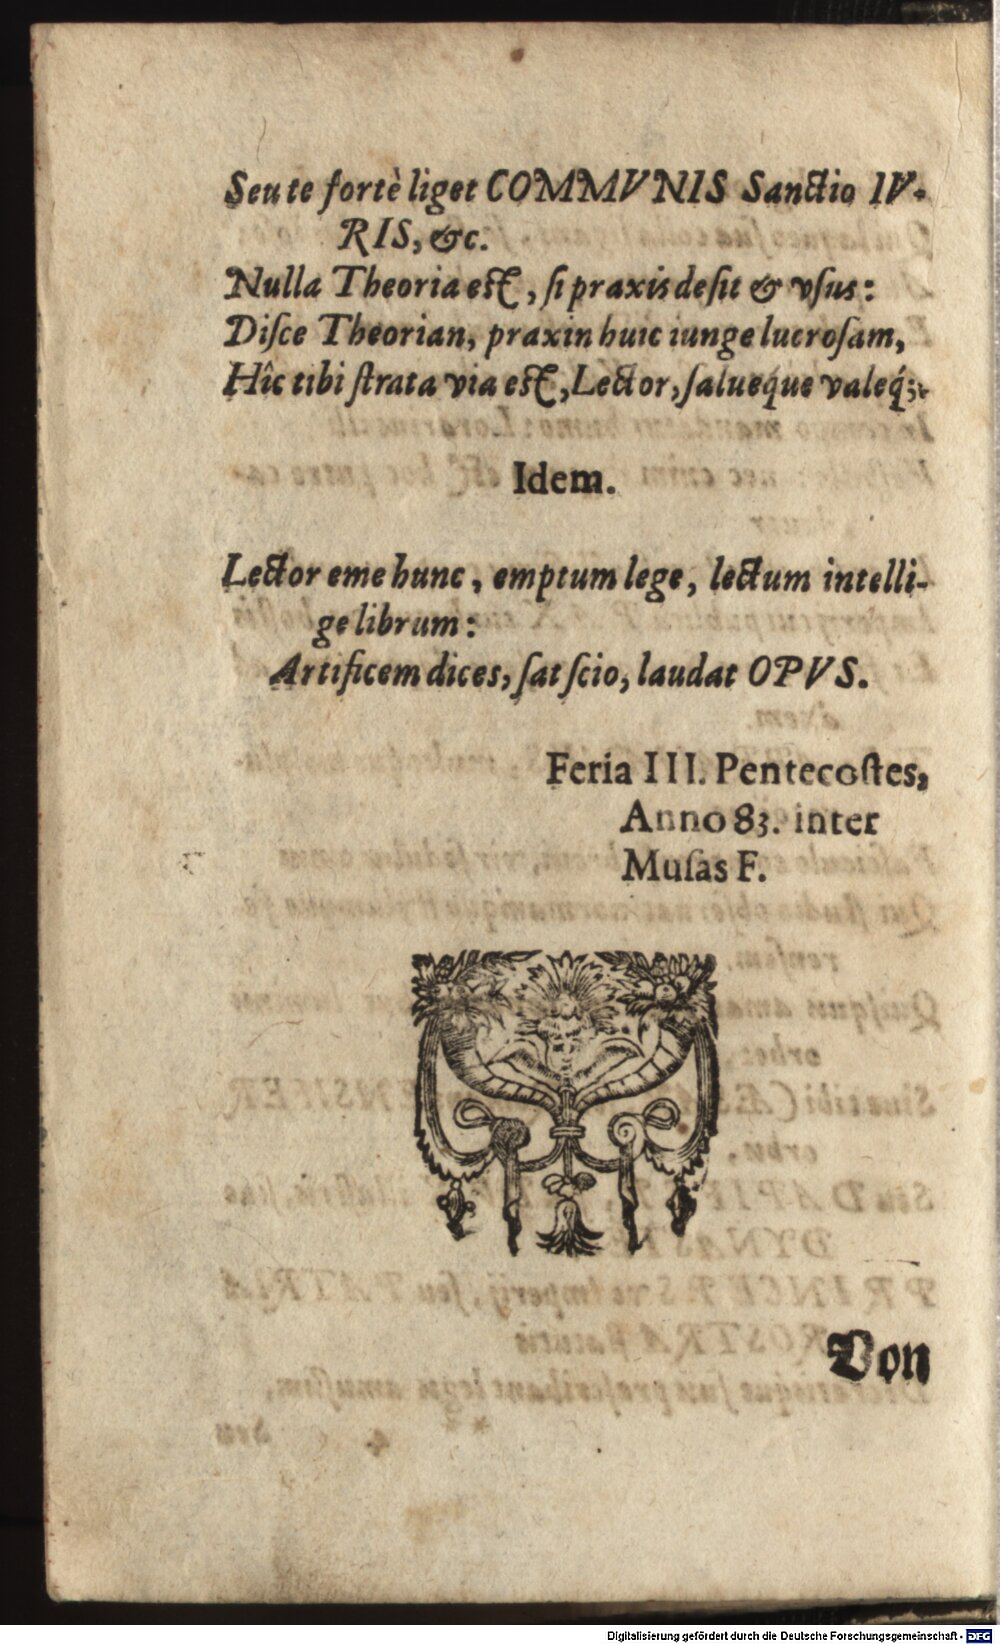 Seu te fortè liget COMMVNIS Sanctio IV-
RIS, &c.
Nulla Theoria est, ſi praxis deſit & vſus:
Diſce Theorian, praxin huic iunge lucroſam,
Hîc tibi ſtrata via est, Lector, ſalueq́ue valeq́;
Idem.
Lector eme hunc, emptum lege, lectum intelli-
ge librum:
Artificem dices, ſat ſcio, laudat OPVS.
Feria III. Pentecoſtes,
Anno 83. inter
Muſas F.
Von
Digitalisierung gefördert durch die Deutsche Forschungsgemeinschaft - DFG